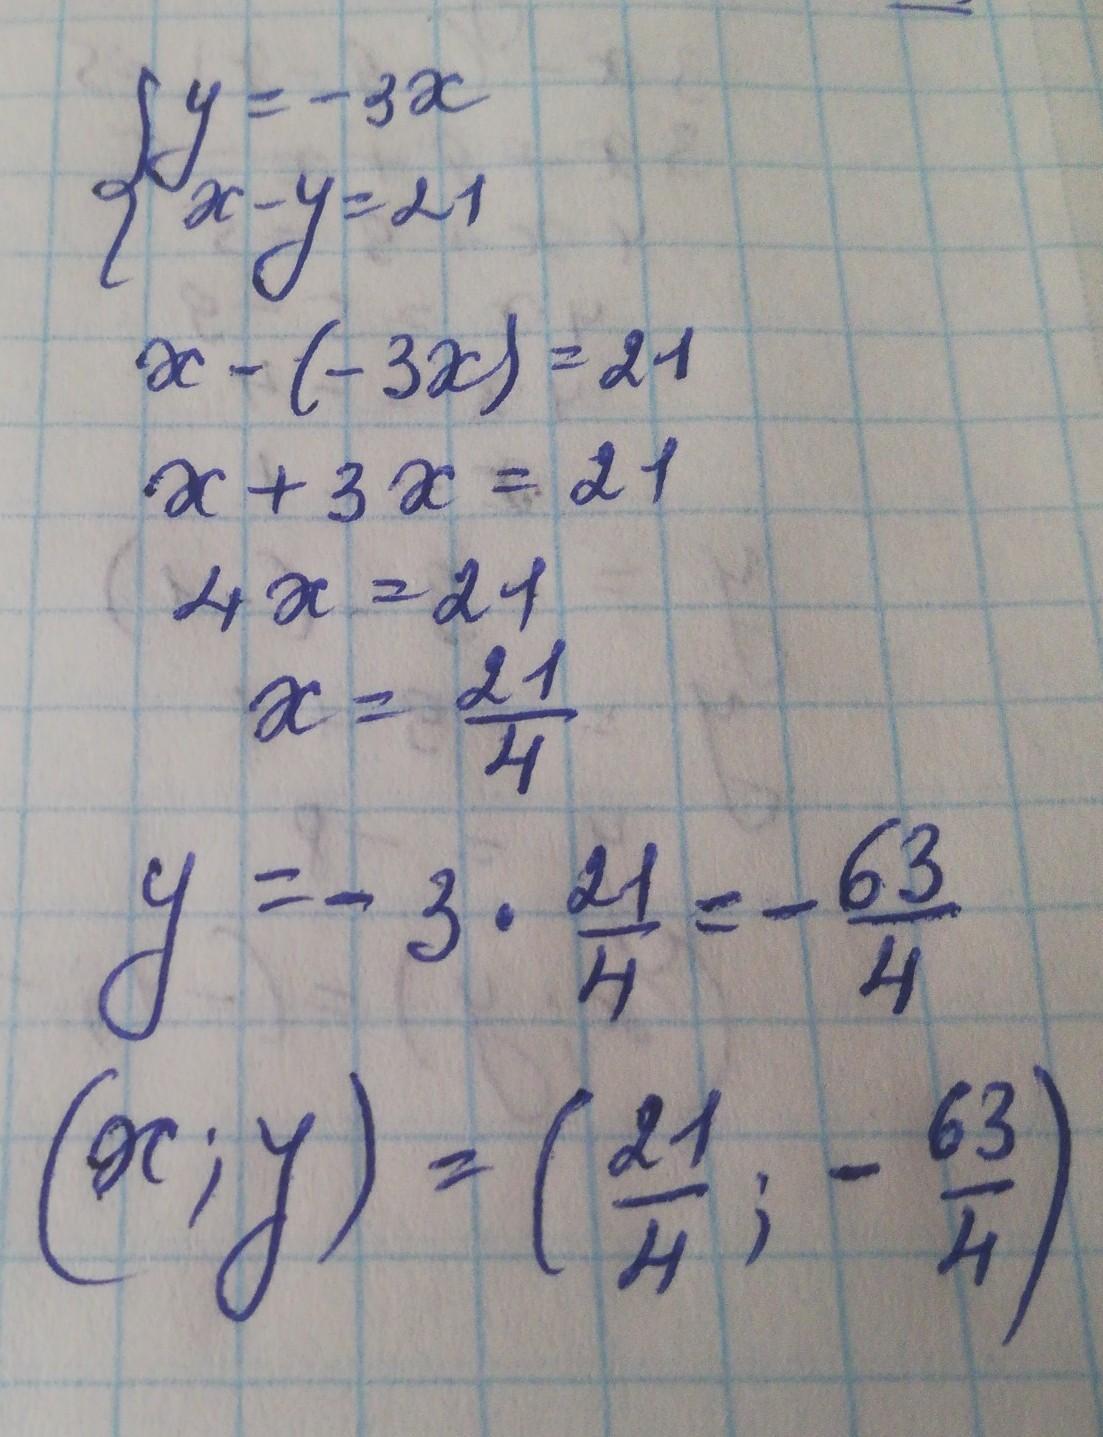 { y = -3x
x - y = 21
x - (-3x) = 21
x + 3x = 21
4x = 21
x = 21/4
y = -3 · 21/4 = -63/4
(x; y) = (21/4; -63/4)